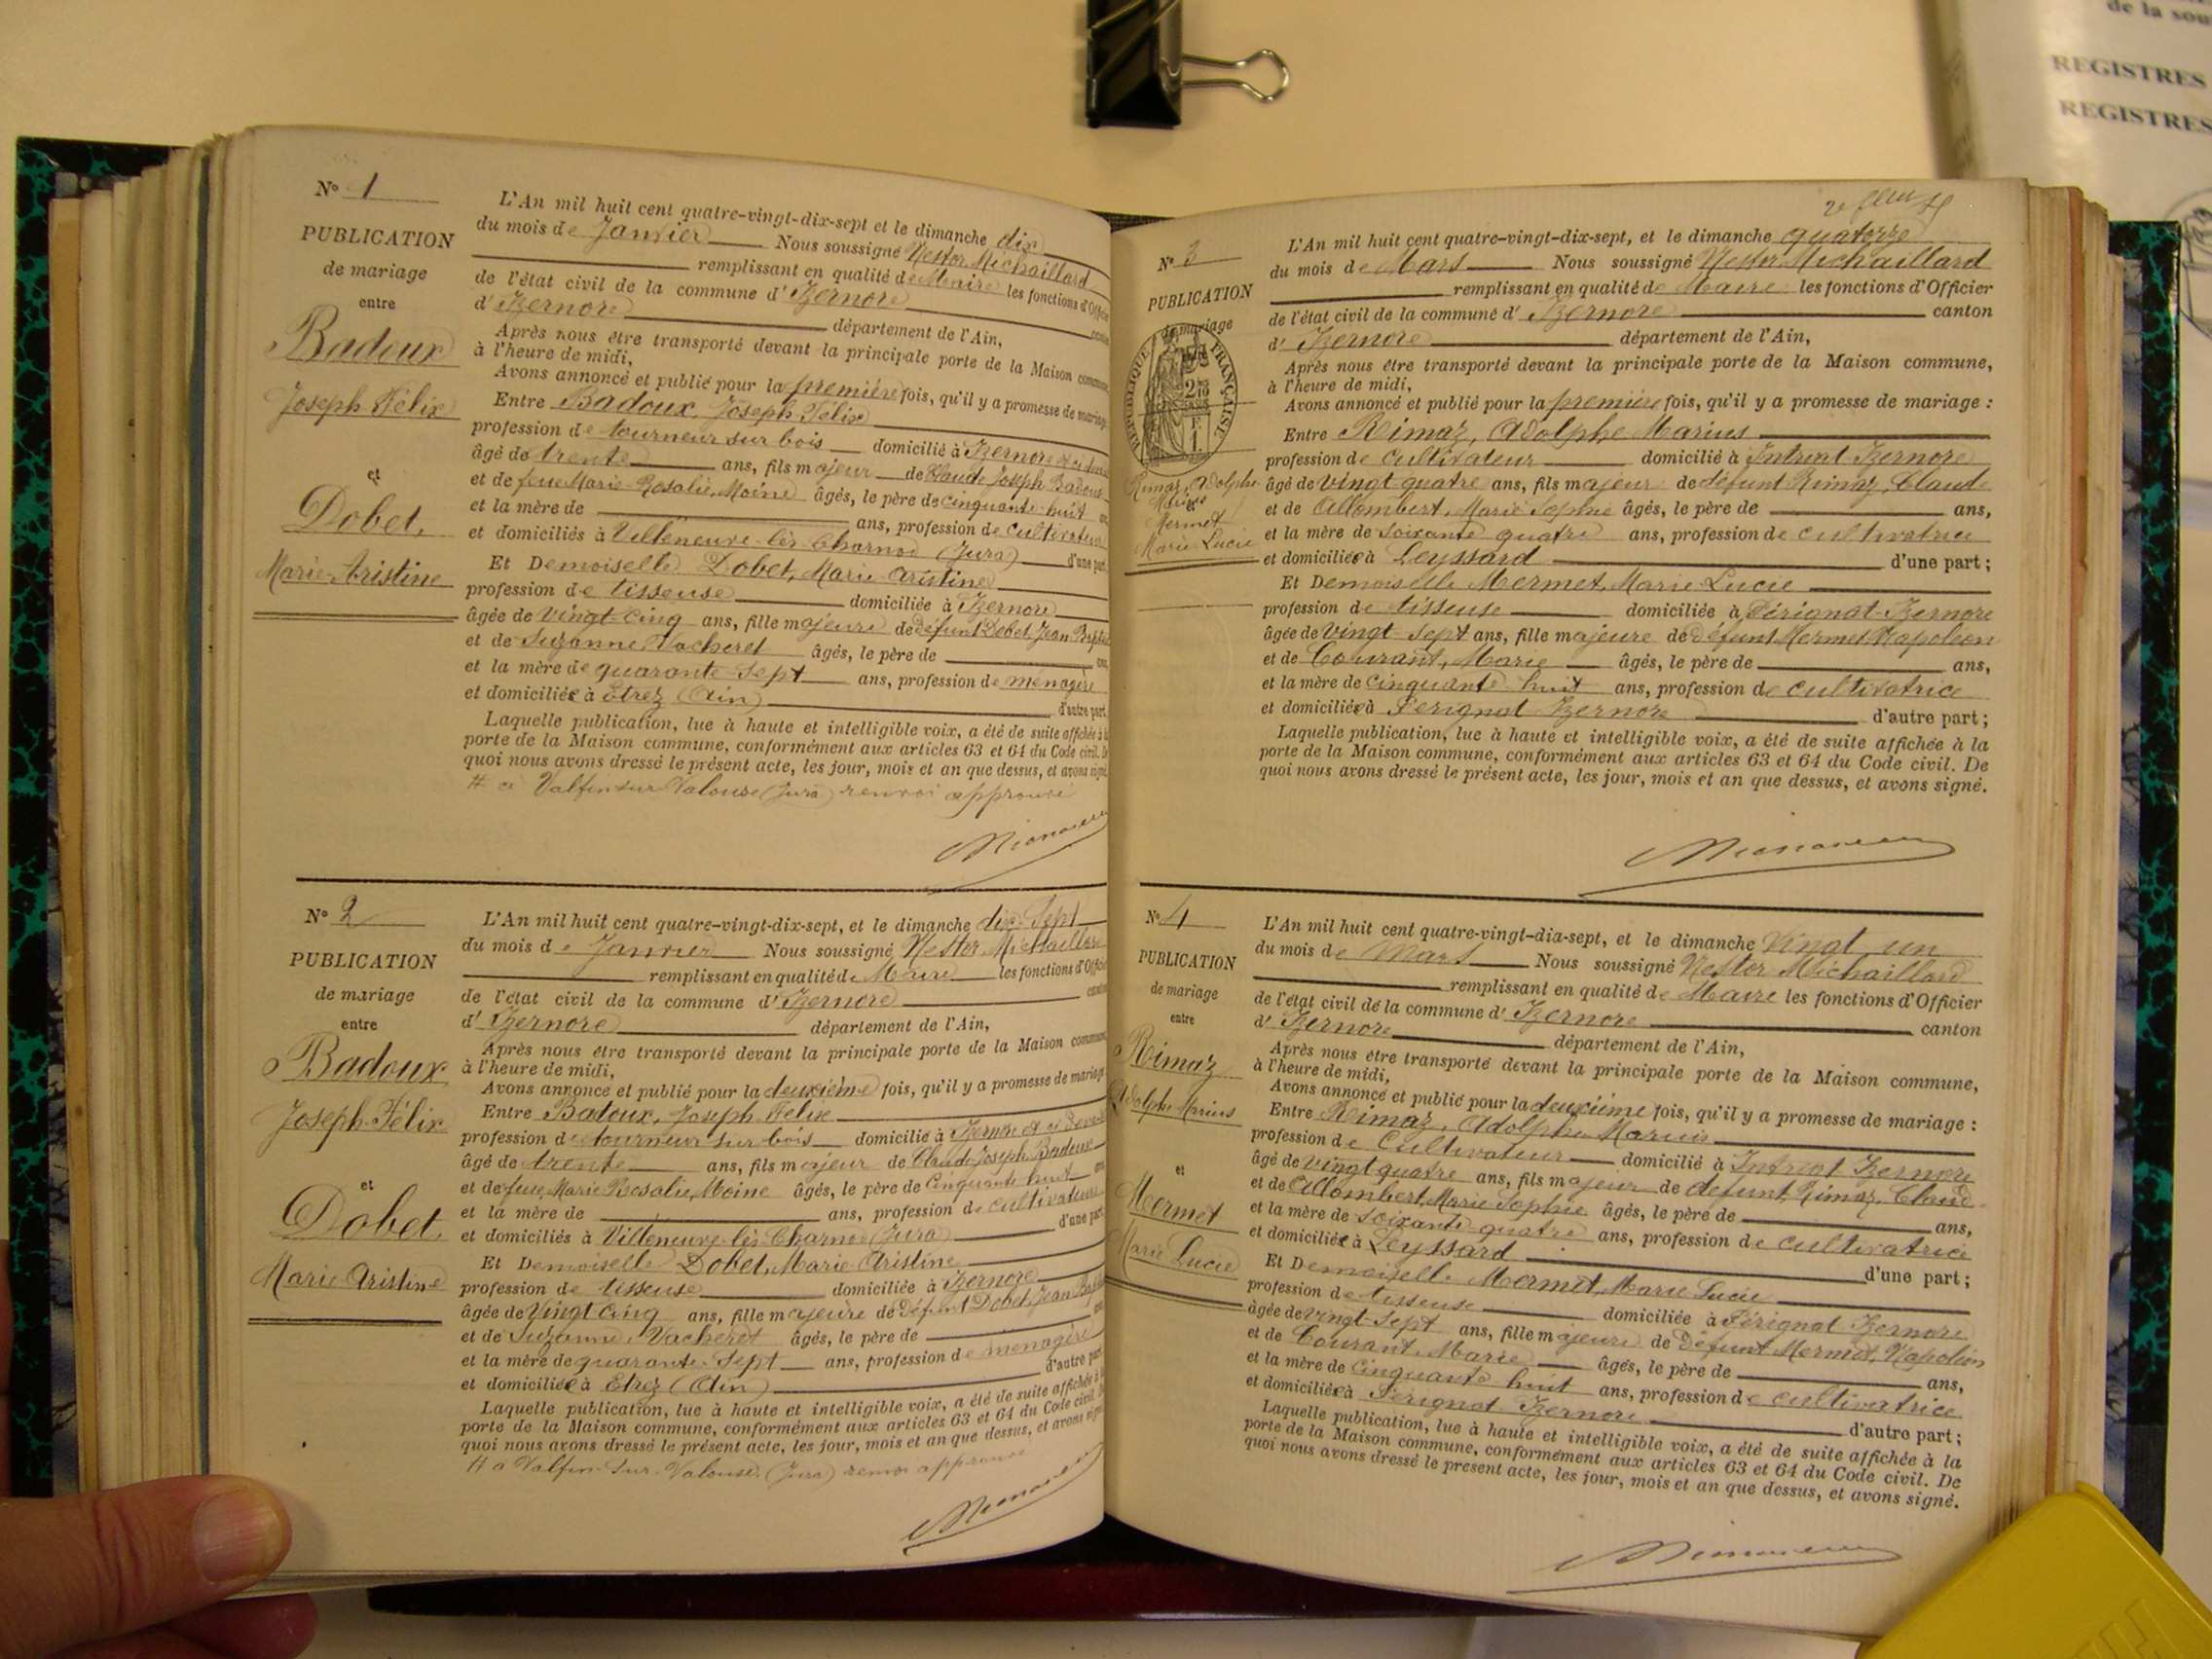 de la sou
REGISTRES
REGISTRES
N° 1
PUBLICATION
de mariage
entre
Badoux
Joseph Félix
et
Dobet,
Marie-Aristine
L'An mil huit cent quatre-vingt-dix-sept et le dimanche dix
du mois de Janvier Nous soussigné Nestor Michaillard
remplissant en qualité de Maire les fonctions d'Officier
de l'état civil de la commune d'Izernore
d'Izernore département de l'Ain,
Après nous être transporté devant la principale porte de la Maison commune
à l'heure de midi,
Avons annoncé et publié pour la première fois, qu'il y a promesse de mariage
Entre Badoux, Joseph Félix
profession de tourneur sur bois domicilié à Izernore
âgé de trente ans, fils majeur de Claude Joseph Badoux
et de feue Marie-Rosalie, Moine âgés, le père de cinquante-huit
et la mère de ans, profession de cultivateur
et domiciliés à Villeneuve-lès-Charnod (Jura) d'une part
Et Demoiselle Dobet, Marie-Aristine
profession de tisseuse domiciliée à Izernore
âgée de vingt-cinq ans, fille majeure de défunt Dobet, Jean
et de Suzanne Vacheret âgés, le père de
et la mère de quarante-sept ans, profession de ménagère
et domiciliée à Etrez (Ain) d'autre part
Laquelle publication, lue à haute et intelligible voix, a été de suite affichée à la
porte de la Maison commune, conformément aux articles 63 et 64 du Code civil. De
quoi nous avons dressé le présent acte, les jour, mois et an que dessus, et avons signé
# à Valfin-sur-Valouse (Jura) renvoi approuvé
N° 2
PUBLICATION
de mariage
entre
Badoux
Joseph-Félix
et
Dobet,
Marie Aristine
L'An mil huit cent quatre-vingt-dix-sept, et le dimanche dix-sept
du mois de Janvier Nous soussigné Nestor Michaillard
remplissant en qualité de Maire les fonctions d'Officier
de l'état civil de la commune d'Izernore
d'Izernore département de l'Ain,
Après nous être transporté devant la principale porte de la Maison commune
à l'heure de midi,
Avons annoncé et publié pour la deuxième fois, qu'il y a promesse de mariage
Entre Badoux, Joseph Félix
profession de tourneur sur bois domicilié à Izernore et
âgé de trente ans, fils majeur de Claude Joseph Badoux
et de feue, Marie Rosalie, Moine âgés, le père de cinquante huit
et la mère de ans, profession de cultivateur
et domiciliés à Villeneuve-lès-Charnod (Jura) d'une part
Et Demoiselle Dobet, Marie-Aristine
profession de tisseuse domiciliée à Izernore
âgée de vingt cinq ans, fille majeure de défunt Dobet, Jean
et de Suzanne, Vacheret âgés, le père de
et la mère de quarante-sept ans, profession de ménagère
et domiciliée à Etrez (Ain) d'autre part
Laquelle publication, lue à haute et intelligible voix, a été de suite affichée à la
porte de la Maison commune, conformément aux articles 63 et 64 du Code civil. De
quoi nous avons dressé le présent acte, les jour, mois et an que dessus, et avons signé
# à Valfin-sur-Valouse (Jura) renvoi approuvé
N° 3
PUBLICATION
de mariage
RÉPUBLIQUE FRANÇAISE
Rimaz, Adolphe
Marius
et
Mermet
Marie-Lucie
L'An mil huit cent quatre-vingt-dix-sept, et le dimanche quatorze
du mois de Mars Nous soussigné Nestor Michaillard
remplissant en qualité de Maire les fonctions d'Officier
de l'état civil de la commune d'Izernore canton
d'Izernore département de l'Ain,
Après nous être transporté devant la principale porte de la Maison commune,
à l'heure de midi,
Avons annoncé et publié pour la première fois, qu'il y a promesse de mariage :
Entre Rimaz, Adolphe Marius
profession de cultivateur domicilié à Intreat Izernore
âgé de vingt quatre ans, fils majeur de défunt Rimaz, Claude
et de Allombert, Marie Sophie âgés, le père de ans,
et la mère de soixante quatre ans, profession de cultivatrice
et domiciliée à Leyssard d'une part ;
Et Demoiselle Mermet, Marie-Lucie
profession de tisseuse domiciliée à Pérignat-Izernore
âgée de vingt-sept ans, fille majeure de défunt Mermet Napoléon
et de Courant, Marie âgés, le père de ans,
et la mère de cinquante huit ans, profession de cultivatrice
et domiciliée à Pérignat Izernore d'autre part ;
Laquelle publication, lue à haute et intelligible voix, a été de suite affichée à la
porte de la Maison commune, conformément aux articles 63 et 64 du Code civil. De
quoi nous avons dressé le présent acte, les jour, mois et an que dessus, et avons signé.
N° 4
PUBLICATION
de mariage
entre
Rimaz
Adolphe Marius
et
Mermet
Marie Lucie
L'An mil huit cent quatre-vingt-dix-sept, et le dimanche vingt un
du mois de Mars Nous soussigné Nestor Michaillard
remplissant en qualité de Maire les fonctions d'Officier
de l'état civil de la commune d'Izernore canton
d'Izernore département de l'Ain,
Après nous être transporté devant la principale porte de la Maison commune,
à l'heure de midi,
Avons annoncé et publié pour la deuxième fois, qu'il y a promesse de mariage :
Entre Rimaz, Adolphe Marius
profession de cultivateur domicilié à Intreat Izernore
âgé de vingt quatre ans, fils majeur de défunt, Rimaz, Claude
et de Allombert, Marie Sophie âgés, le père de ans,
et la mère de soixante quatre ans, profession de cultivatrice
et domiciliée à Leyssard d'une part ;
Et Demoiselle Mermet, Marie Lucie
profession de tisseuse domiciliée à Pérignat Izernore
âgée de vingt-sept ans, fille majeure de défunt Mermet, Napoléon
et de Courant, Marie âgés, le père de ans,
et la mère de cinquante huit ans, profession de cultivatrice
et domiciliée à Pérignat Izernore d'autre part ;
Laquelle publication, lue à haute et intelligible voix, a été de suite affichée à la
porte de la Maison commune, conformément aux articles 63 et 64 du Code civil. De
quoi nous avons dressé le présent acte, les jour, mois et an que dessus, et avons signé.